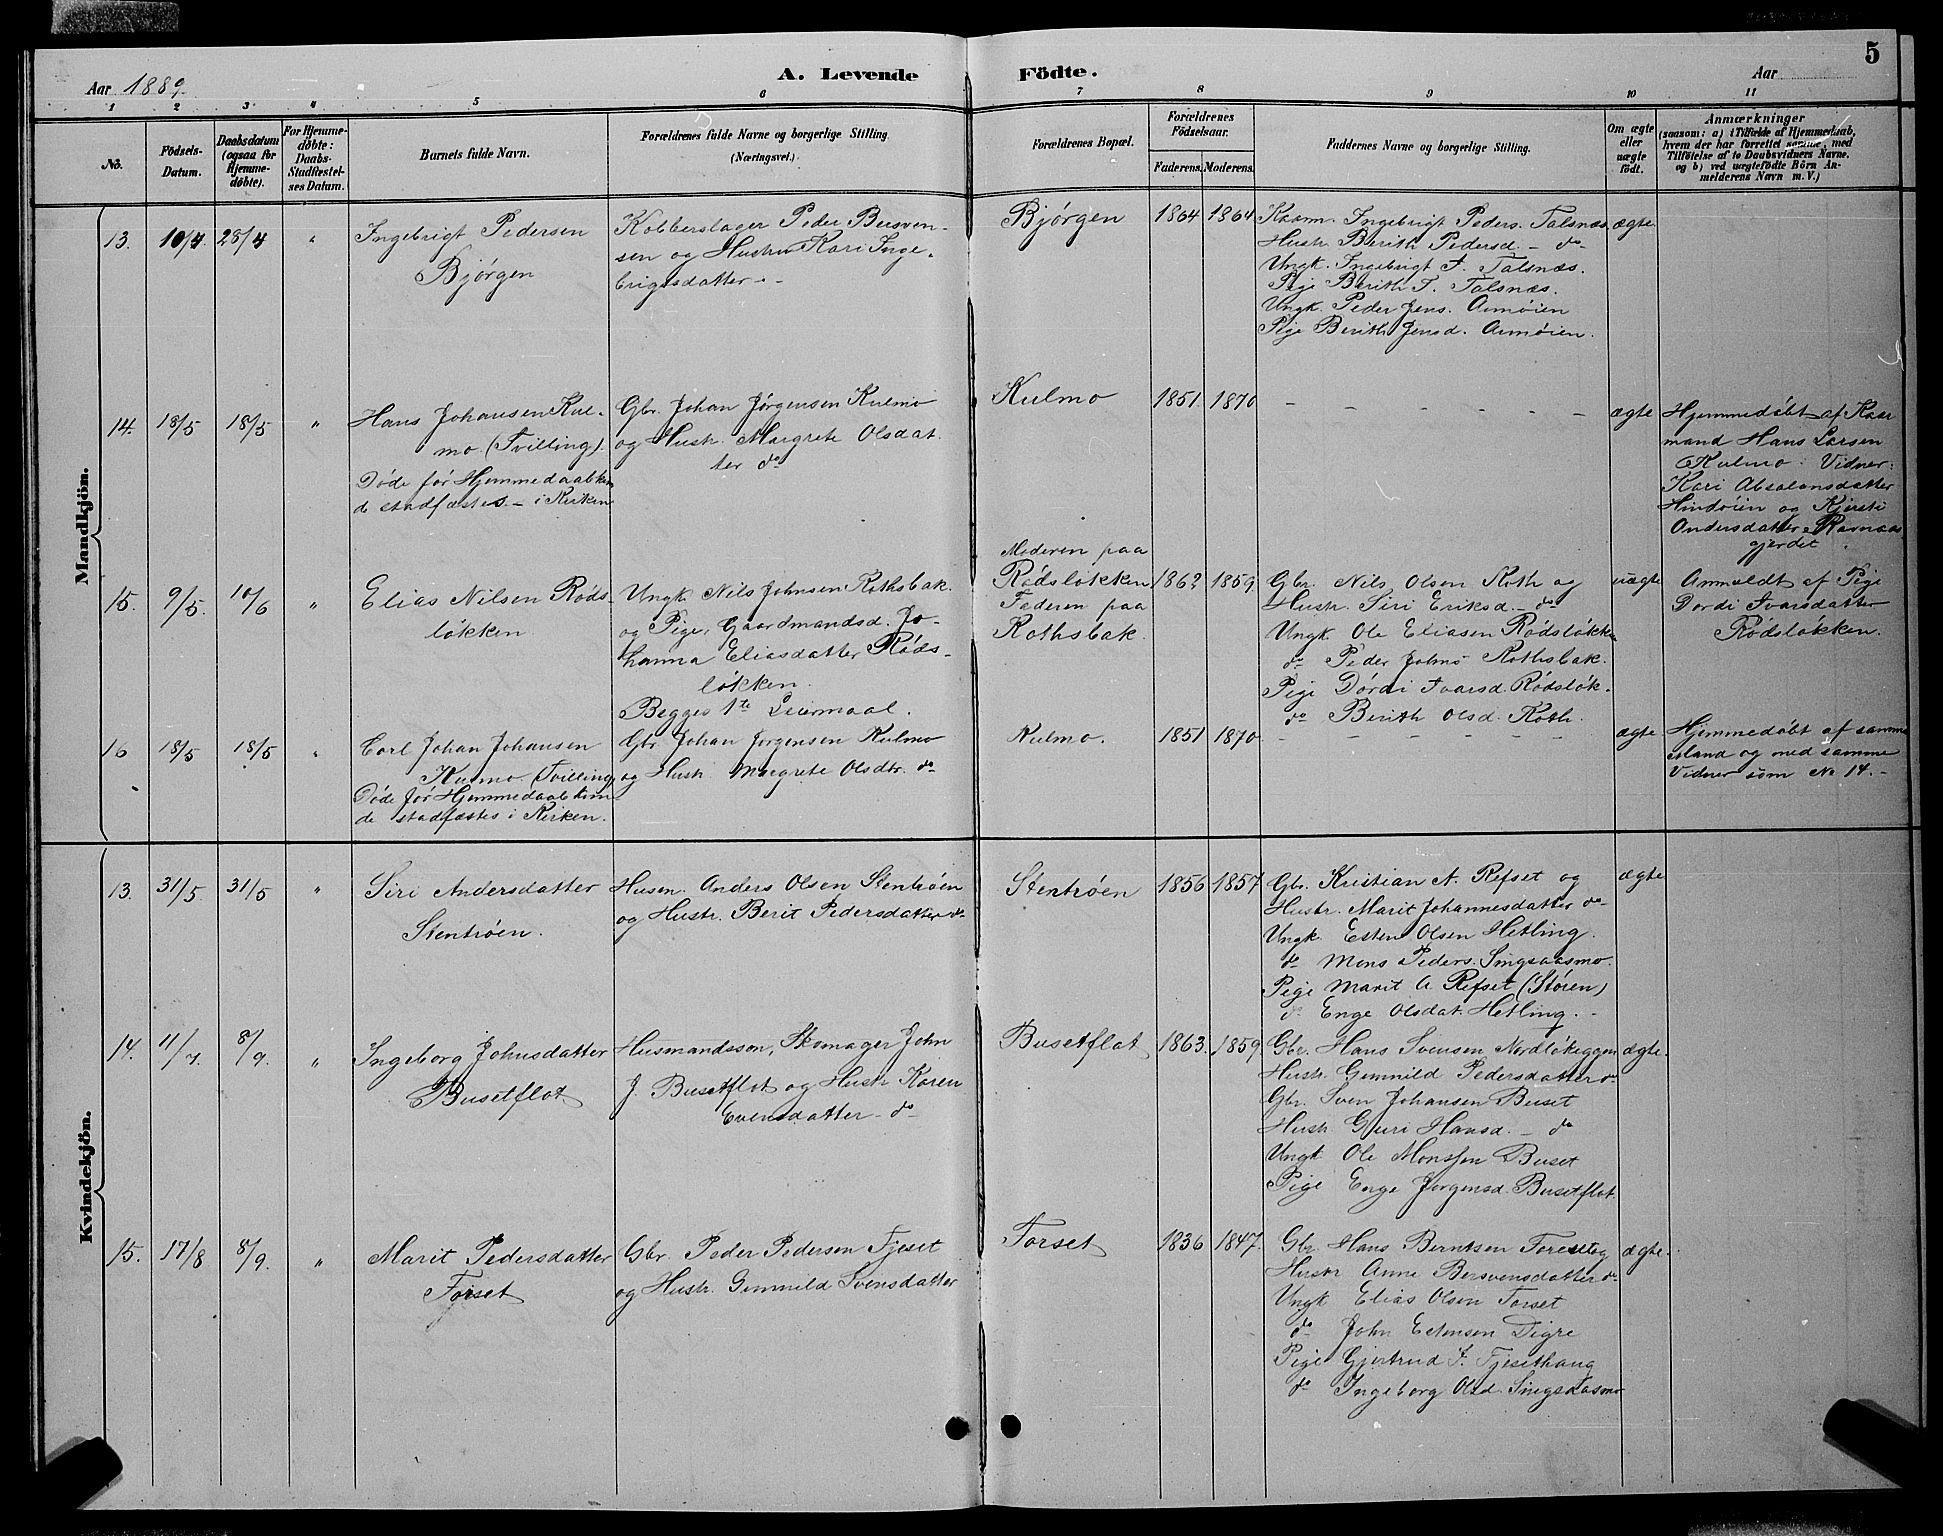 5
Aar 1889.
A. Levende Födte.
Aar
1 2 3 4 5 6 7 8 9 10 11
No.
Födsels-Datum.
Daabsdatum (ogsaa for Hjemmedøbte).
For Hjemmedøbte: Daabs-Stadfæstelses Datum.
Barnets fulde Navn.
Forældrenes fulde Navne og borgerlige Stilling. (Næringsvei.)
Forældrenes Bopæl.
Forældrenes Födselsaar.
Faderens. Moderens.
Faddernes Navne og borgerlige Stilling.
Om ægte eller uægte født.
Anmærkninger
(saasom: a) i Tilfælde af Hjemmedaab, hvem der har forrettet samme, med Tilföielse af to Daabsvidners Navne, og b) ved uægtefödte Börn Anmelderens Navn m. V.)
Mandkjön.
13. 10/4 28/4 "
Ingebrigt Pedersen
Bjørgen
Kobberslager Peder Bersven-
sen og Hustru Kari Inge-
brigtsdatter -
Bjørgen
1864 1864
Kaarm. Ingebrigt Peders. Talsnæs
Hustr. Berith Pedersd. - do
Ungk. Ingebrigt I. Talsnæs.
Pige Berith I. Talsnæs.
Ungk. Peder Jens. Aunøien
Pige Berith Jensd. Aunøien.
ægte
14. 18/5 18/5 "
Hans Johansen Kul-
mo. (Tvilling).
Døde før Hjemmedaab kun
de stadfæstes - i Kirken
Gbr. Johan Jørgensen Kulmo
og Hustr. Margrete Olsdat
ter do
Kulmo
1851 1870
- - - - - -
ægte
Hjemmedøbt af Kaar
mand Hans Larsen
Kulmo. Vidner:
Kari Absalonsdatter
Hindøien og Kjersti
Andersdatter Ravnaas
gjerdet.
15. 9/5 10/6 "
Elias Nilsen Røds-
løkken
Ungk. Nils Johnsen Rothsbak.
og Pige, Gaardmandsd. Jo-
hanna Eliasdatter Røds-
løkken.
Begges 1te Leiermaal.
Moderen paa
Rødsløkken
Faderen paa
Rothsbak.
1862 1859
Gbr. Nils Olsen Roth og
Hustr. Siri Eriksd. - do
Ungk Ole Eliasen Rødsløkke
do Peder Johns Rothsbak.
Pige Dørdi Ivarsd. Rødsløk.
do Berith Olsd. Roth.
uægte
Anmeldt af Pige
Dordi Ivarsdatter
Rødsløkken.
16 18/5 18/5 "
Carl Johan Johansen
Kulmo. (Tvilling
Døde før Hjemmedaab kun-
de stadfæstes i Kirken.
Gbr. Johan Jørgensen Kulmo
og Hustr Margrete Olsdtr. do
Kulmo.
1851 1870
- - - - - -
ægte
Hjemmedøbt af samme
Mand og med samme
Vidner som No 14. -
Kvindekjön.
13. 31/5 31/5 "
Siri Andersdatter
Stentrøen.
Husm. Anders Olsen Stentrøen
og Hustr. Berit Pedersdatter do
Stentrøen
1856 1857
Gbr. Kristian A. Refset og
Hustr. Marit Johannesdatter do
Ungk. Esten Olsen Hetling.
do Mons Peders. Singsaasmo.
Pige Marit A. Refset (Støren)
do Enge Olsdat. Hetling. -
ægte
14. 11/7 8/9. "
Ingeborg Johnsdatter
Busetflot
Husmandssøn, Skomager John
J. Busetflot og Hustr Karen
Evensdatter - do
Busetflot
1863. 1859
Gbr. Hans Svensen Nordløkeggen
Hustr. Gunnild Pedersdatter do
Gbr. Sven Johansen Buset
Hustr Guri Hansd. - do
Ungk Ole Monssen Buset
Pige Enge Jørgensd. Busetflot.
ægte.
15. 17/8 8/9. "
Marit Pedersdatter
Forset
Gbr. Peder Pedersen Fjeset
og Hustr. Gunnild Svensdatter
Forset
1836 1847.
Gbr. Hans Berntsen Forset og
Hustr Anne Bersvensdatter do
Ungk Elias Olsen Forset
do John Estensen Digre
Pige Gjertrud I. Fjesethaug
do Ingeborg Olsd. Singsaasmo
ægte.